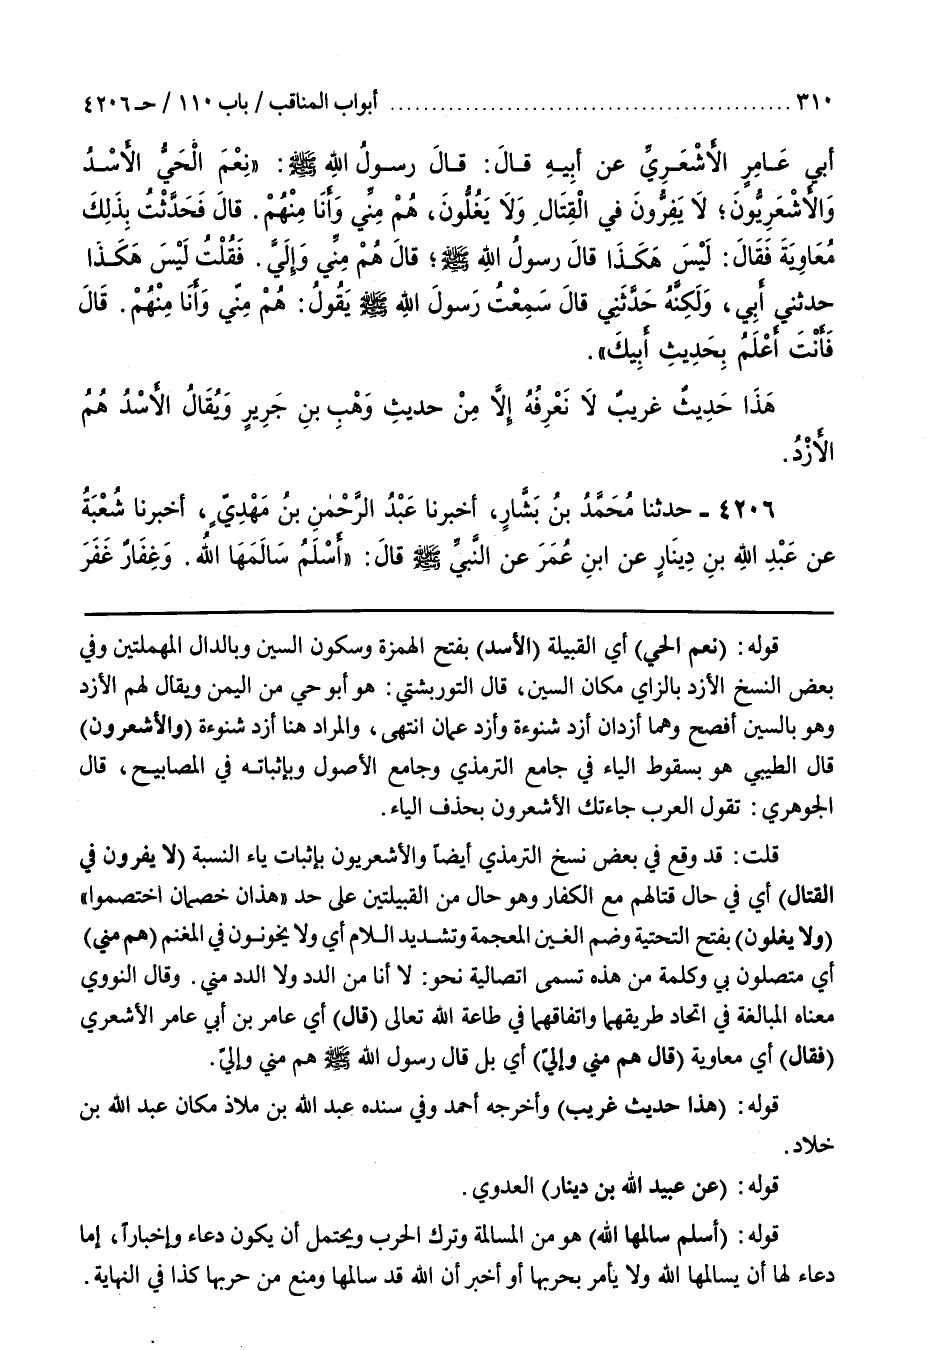 ٣١٠ ............................................ أبواب المناقب / باب ١١٠ / حـ ٤٢٠٦
أبي عَامِرٍ الْأَشْعَرِيِّ عن أبِيهِ قالَ: قالَ رسولُ اللهِ ﷺ: «نِعْمَ الْحَيُّ الأَسْدُ
وَالأَشْعَرِيُّونَ؛ لَا يَفِرُّونَ في الْقِتالِ وَلَا يَغُلُّونَ، هُمْ مِنِّي وَأَنَا مِنْهُمْ. قالَ فَحَدَّثْتُ بِذَلِكَ
مُعَاوِيَةَ فَقَالَ: لَيْسَ هَكَذَا قالَ رسولُ اللهِ ﷺ؛ قالَ هُمْ مِنِّي وَإِلَيَّ. فَقُلْتُ لَيْسَ هَكَذَا
حدثني أَبِي، وَلَكِنَّهُ حَدَّثَنِي قالَ سَمِعْتُ رَسولَ اللهِ ﷺ يَقُولُ: هُمْ مِنّي وَأَنَا مِنْهُمْ. قَالَ
فَأَنْتَ أَعْلَمُ بِحَدِيثِ أَبِيكَ».
هَذَا حَدِيثٌ غريبٌ لَا نَعْرِفُهُ إِلَّا مِنْ حديثِ وَهْبِ بنِ جَرِيرٍ وَيُقَالُ الأَسْدُ هُمُ
الأَزْدُ.
٤٢٠٦ ـ حدثنا مُحَمَّدُ بنُ بَشَّارٍ، أخبرنا عَبْدُ الرَّحْمٰنِ بنُ مَهْدِيّ، أخبرنا شُعْبَةُ
عن عَبْدِ اللهِ بنِ دِينَارٍ عن ابنِ عُمَرَ عن النبيِّ ﷺ قالَ: «أَسْلَمُ سَالَمَهَا اللهُ. وَغِفَارٌ غَفَرَ
قوله: (نعم الحي) أي القبيلة (الأسد) بفتح الهمزة وسكون السين وبالدال المهملتين وفي
بعض النسخ الأزد بالزاي مكان السين، قال التوربشتي: هو أبو حي من اليمن ويقال لهم الأزد
وهو بالسين أفصح وهما أزدان أزد شنوءة وأزد عمان انتهى، والمراد هنا أزد شنوءة (والأشعرون)
قال الطيبي هو بسقوط الياء في جامع الترمذي وجامع الأصول وبإثباته في المصابيح، قال
الجوهري: تقول العرب جاءتك الأشعرون بحذف الياء.
قلت: قد وقع في بعض نسخ الترمذي أيضاً والأشعريون بإثبات ياء النسبة (لا يفرون في
القتال) أي في حال قتالهم مع الكفار وهو حال من القبيلتين على حد «هذان خصمان اختصموا»
(ولا يغلون) بفتح التحتية وضم الغين المعجمة وتشديد اللام أي ولا يخونون في المغنم (هم مني)
أي متصلون بي وكلمة من هذه تسمى اتصالية نحو: لا أنا من الدد ولا الدد مني. وقال النووي
معناه المبالغة في اتحاد طريقهما واتفاقهما في طاعة الله تعالى (قال) أي عامر بن أبي عامر الأشعري
(فقال) أي معاوية (قال هم مني وإليّ) أي بل قال رسول الله ﷺ هم مني وإليّ.
قوله: (هذا حديث غريب) وأخرجه أحمد وفي سنده عبد الله بن ملاذ مكان عبد الله بن
خلاد.
قوله: (عن عبيد الله بن دينار) العدوي.
قوله: (أسلم سالمها الله) هو من المسالمة وترك الحرب ويحتمل أن يكون دعاء وإخباراً، إما
دعاء لها أن يسالمها الله ولا يأمر بحربها أو أخبر أن الله قد سالمها ومنع من حربها كذا في النهاية.